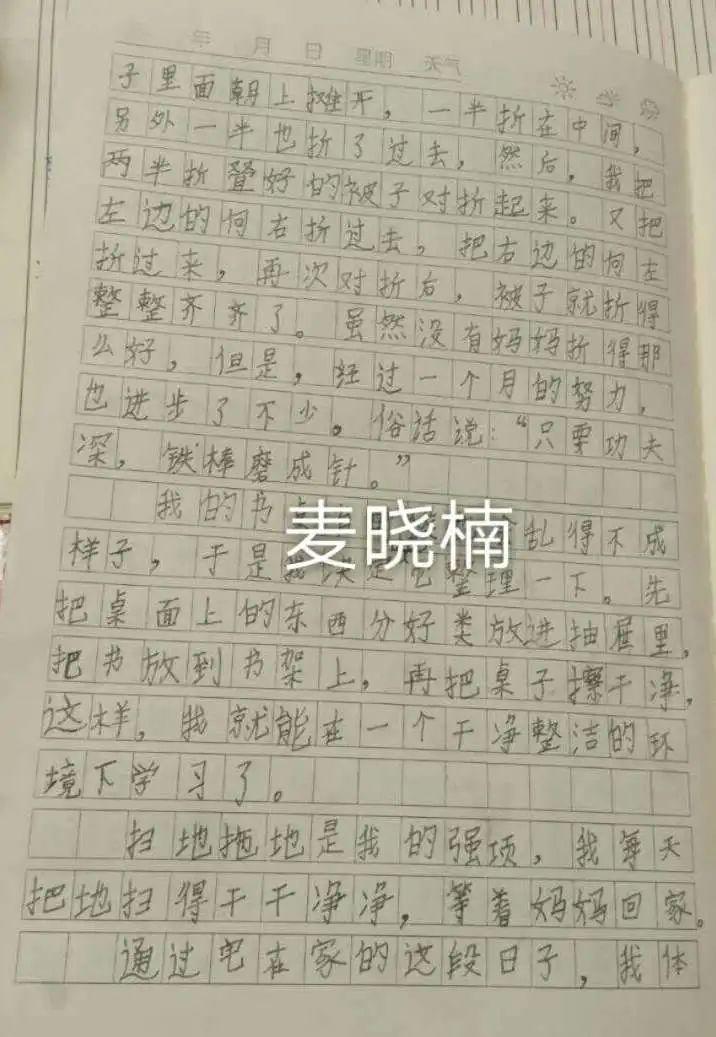 年 月 日 星期 天气
子里面朝上摊开，一半折在中间，
另外一半也折了过去，然后，我把
两半折叠好的被子对折起来。又把
左边的向右折过去，把右边的向左
折过来，再次对折后，被子就折得
整整齐齐了。虽然没有妈妈折得那
么好，但是，经过一个月的努力，
也进步了不少。俗话说：“只要功夫
深，铁棒磨成针。”
我的书桌 乱得不成
样子，于是我决定 整理一下。先
把桌面上的东西分好类放进抽屉里，
把书放到书架上，再把桌子擦干净，
这样，我就能在一个干净整洁的环
境下学习了。
扫地拖地是我的强项，我每天
把地扫得干干净净，等着妈妈回家。
通过宅在家的这段日子，我体
麦晓楠